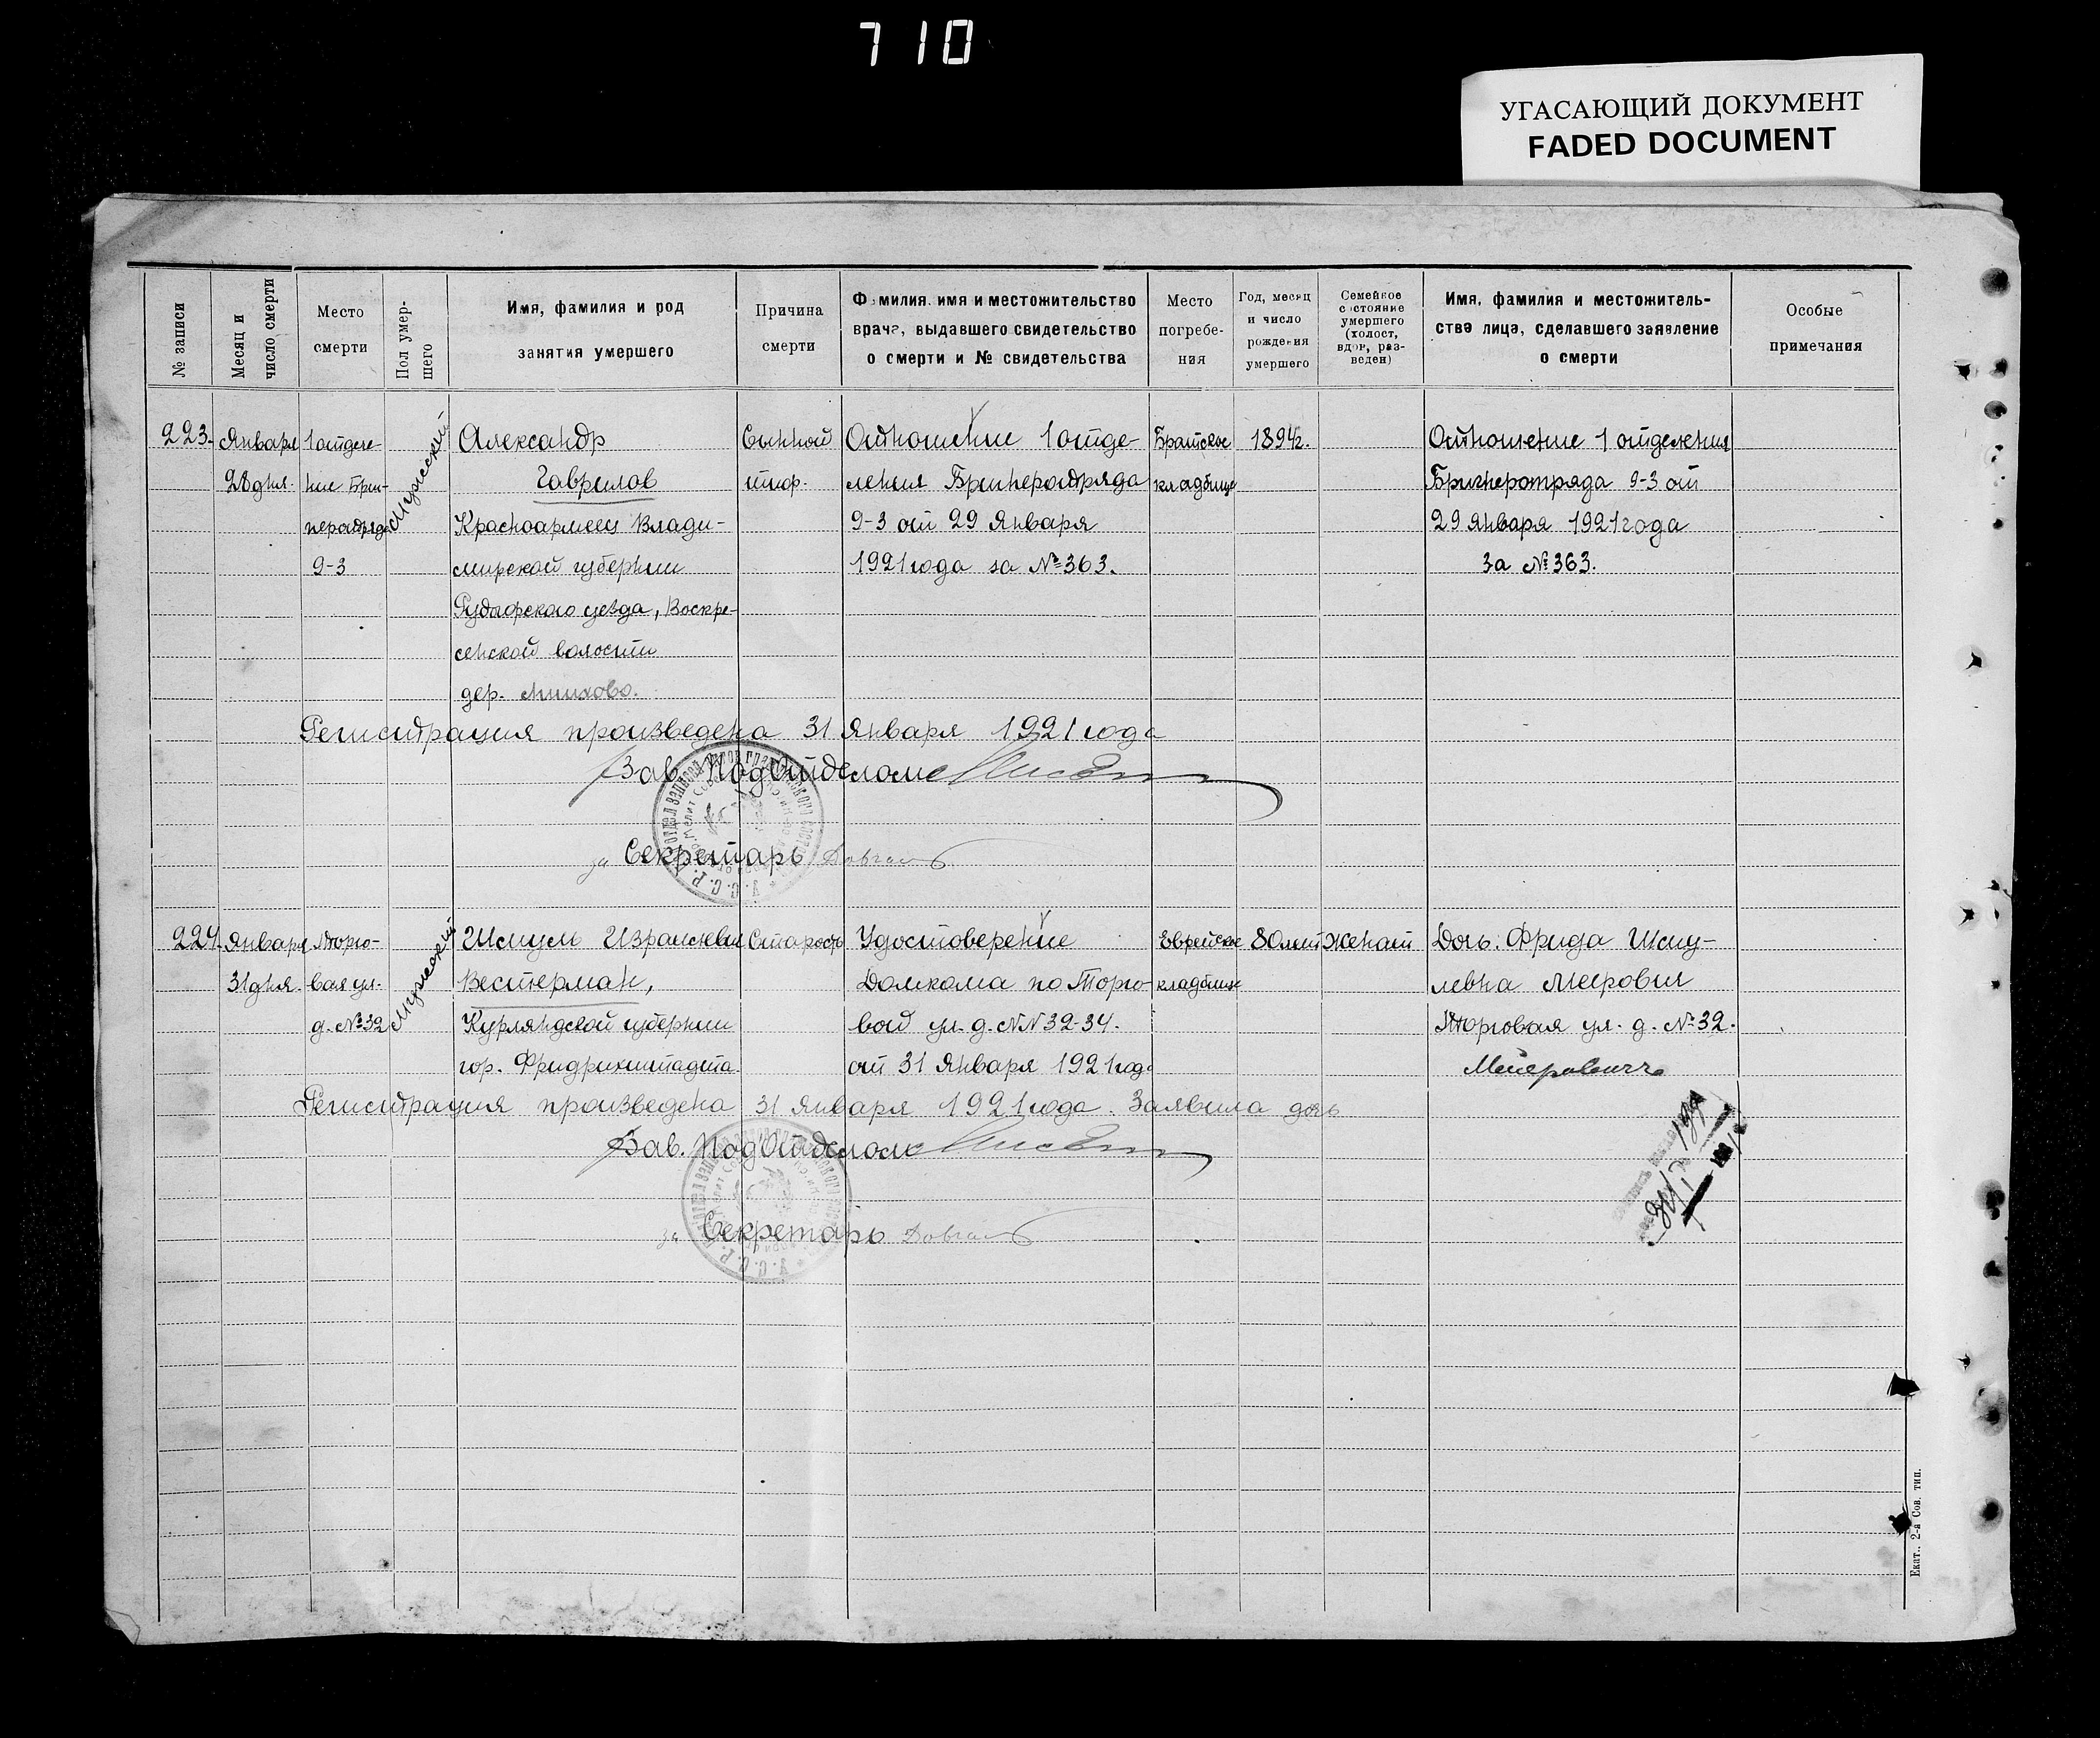 710
УГАСАЮЩИЙ ДОКУМЕНТ
FADED DOCUMENT
№ записи
Месяц и
число смерти
Место
смерти
Пол умер-
шего
Имя, фамилия и род
занятия умершего
Причина
смерти
Фамилия, имя и местожительство
врача, выдавшего свидетельство
о смерти и № свидетельства
Место
погребе-
ния
Год, месяц
и число
рождения
умершего
Семейное
состояние
умершего
(холост,
вдов, раз-
веден)
Имя, фамилия и местожитель-
ства лица, сделавшего заявление
о смерти
Особые
примечания
223.
Января
28 дня.
1 отделе-
ние
9-3
Мужской
Александр
Гаврилов
Красноармеец Влади-
мирской губернии
уезда, Воскре-
сенской волости
дер.
Сыпной
тиф.
Отношение 1 отде-
ления
9-3 от 29 Января
1921 года за № 363.
Братское
кладбище
1894 г.
Отношение 1 отделения
9-3 от
29 Января 1921 года
За № 363.
Регистрация произведена 31 Января 1921 года
Зав. ПодОтделом
за Секретарь
224.
Января
31 дня.
Торго-
вая ул.
д. № 32
Мужской
Шмуль Израилевич
Вестерман,
Курляндской губернии
гор. Фридрихштадта.
Старость
Удостоверение
Домкома по Торго-
вой ул. д. NN 32-34.
от 31 Января 1921 год.
Еврейское
кладбище
80 лет
женат
Дочь: Фрида Шму-
левна Меерович
Торговая ул. д. № 32.
Регистрация произведена 31 Января 1921 года. Заявила дочь
Зав. ПодОтделом
за Секретарь
Екат., 2-а Сов. тип.